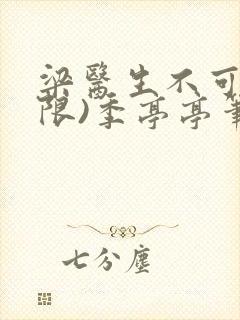 梁医生不可
限)季亭亭笔
七分尘